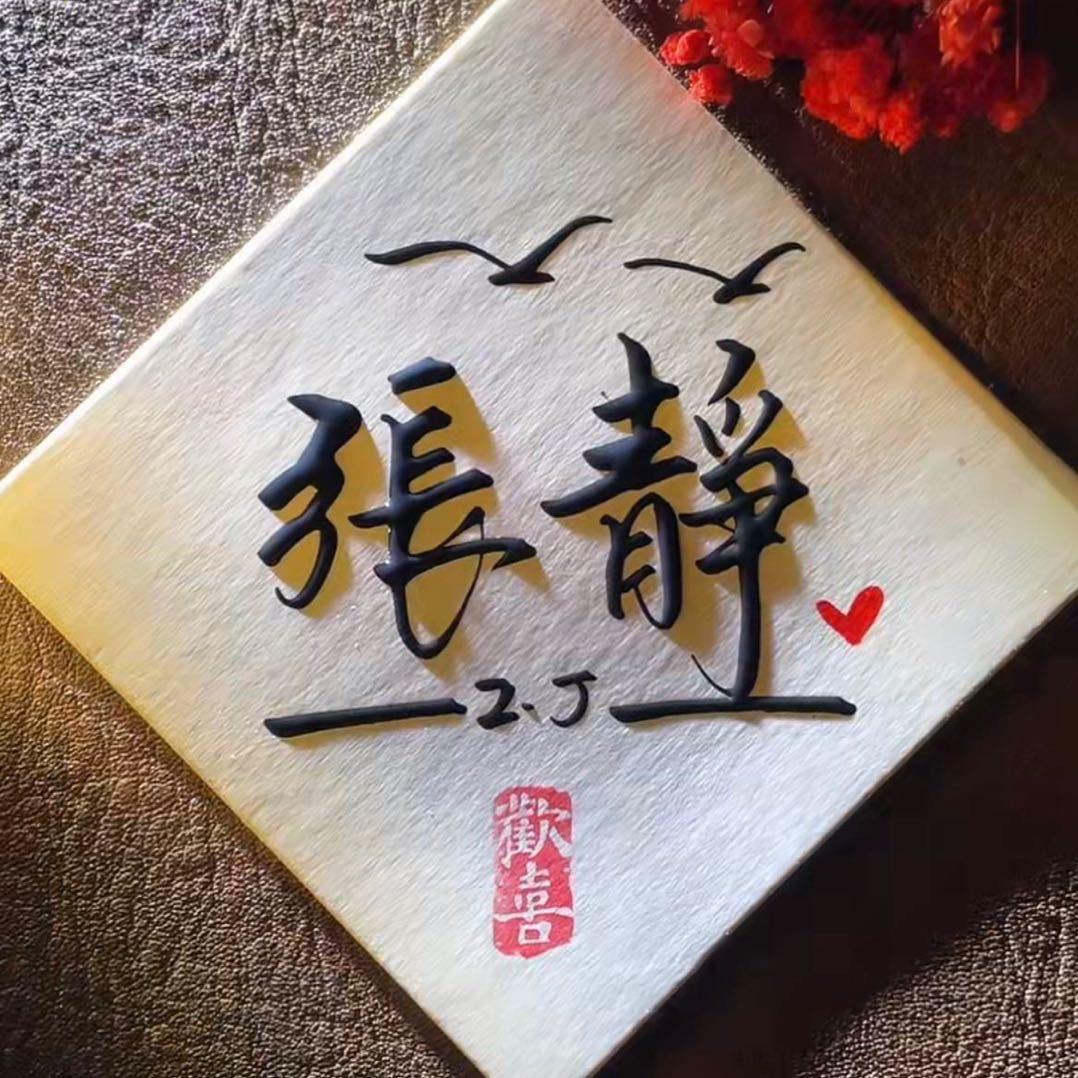 張靜
Z.J
歡喜